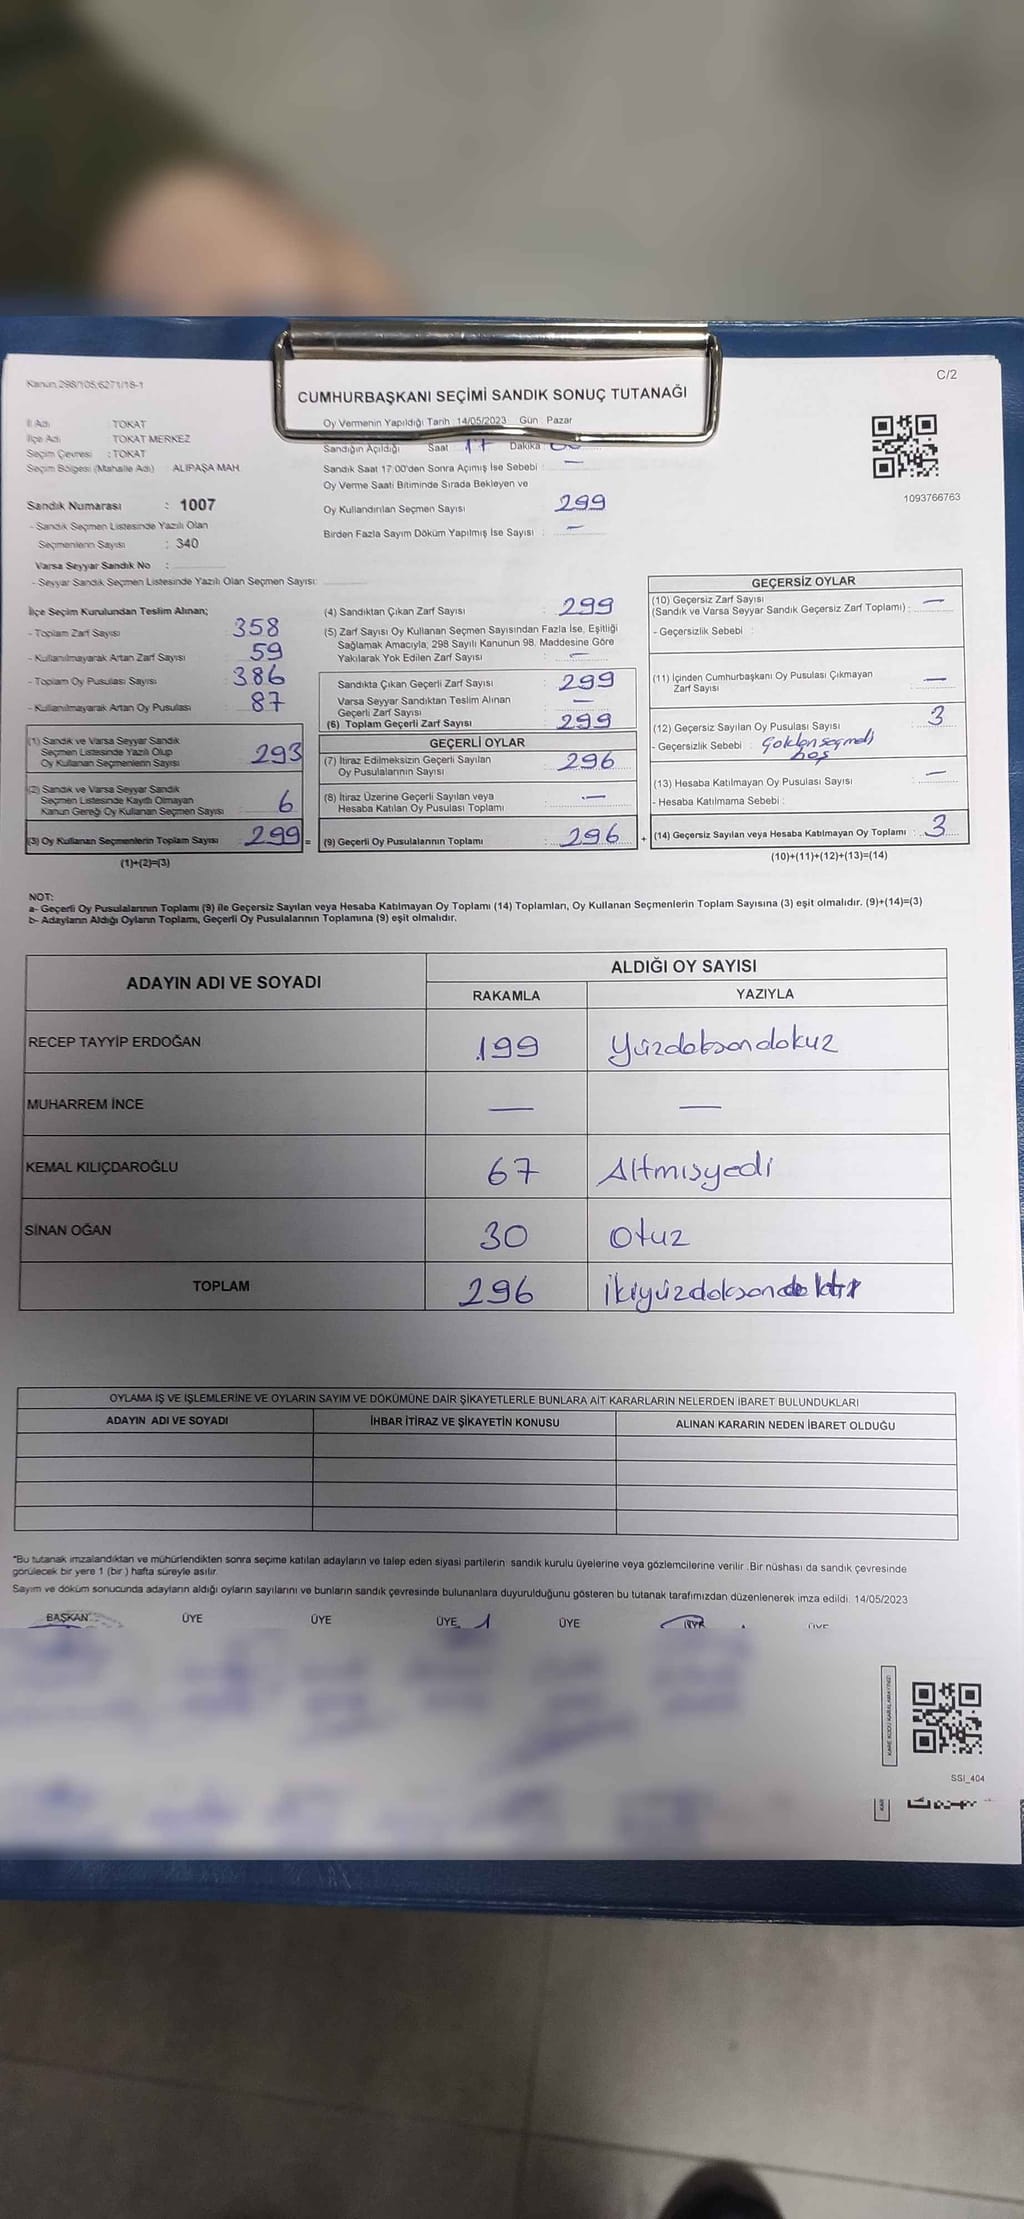 Kanun,298/105;6271/18-1
C/2
CUMHURBAŞKANI SEÇİMİ SANDIK SONUÇ TUTANAĞI
İl Adı TOKAT
İlçe Adı TOKAT MERKEZ
Seçim Çevresi : TOKAT
Seçim Bölgesi (Mahalle Adı) ALİPAŞA MAH.
Oy Vermenin Yapıldığı Tarih : 14/05/2023 Gün : Pazar
Sandığın Açıldığı Saat 17 Dakika
Sandık Saat 17:00'den Sonra Açılmış İse Sebebi : —
Oy Verme Saati Bitiminde Sırada Bekleyen ve
Oy Kullandırılan Seçmen Sayısı 299
Birden Fazla Sayım Döküm Yapılmış İse Sayısı : —
1093766763
Sandık Numarası : 1007
- Sandık Seçmen Listesinde Yazılı Olan
Seçmenlerin Sayısı : 340
Varsa Seyyar Sandık No :
- Seyyar Sandık Seçmen Listesinde Yazılı Olan Seçmen Sayısı:
İlçe Seçim Kurulundan Teslim Alınan;
- Toplam Zarf Sayısı 358
- Kullanılmayarak Artan Zarf Sayısı 59
- Toplam Oy Pusulası Sayısı 386
- Kullanılmayarak Artan Oy Pusulası 87
(1) Sandık ve Varsa Seyyar Sandık
Seçmen Listesinde Yazılı Olup
Oy Kullanan Seçmenlerin Sayısı 293
(2) Sandık ve Varsa Seyyar Sandık
Seçmen Listesinde Kayıtlı Olmayan
Kanun Gereği Oy Kullanan Seçmen Sayısı 6
(3) Oy Kullanan Seçmenlerin Toplam Sayısı 299 =
(1)+(2)=(3)
(4) Sandıktan Çıkan Zarf Sayısı : 299
(5) Zarf Sayısı Oy Kullanan Seçmen Sayısından Fazla İse, Eşitliği
Sağlamak Amacıyla, 298 Sayılı Kanunun 98. Maddesine Göre
Yakılarak Yok Edilen Zarf Sayısı : —
Sandıkta Çıkan Geçerli Zarf Sayısı : 299
Varsa Seyyar Sandıktan Teslim Alınan
Geçerli Zarf Sayısı : —
(6) Toplam Geçerli Zarf Sayısı : 299
GEÇERLİ OYLAR
(7) İtiraz Edilmeksizin Geçerli Sayılan
Oy Pusulalarının Sayısı : 296
(8) İtiraz Üzerine Geçerli Sayılan veya
Hesaba Katılan Oy Pusulası Toplamı : —
(9) Geçerli Oy Pusulalarının Toplamı : 296 +
GEÇERSİZ OYLAR
(10) Geçersiz Zarf Sayısı
(Sandık ve Varsa Seyyar Sandık Geçersiz Zarf Toplamı) : —
- Geçersizlik Sebebi :
(11) İçinden Cumhurbaşkanı Oy Pusulası Çıkmayan
Zarf Sayısı : —
(12) Geçersiz Sayılan Oy Pusulası Sayısı : 3
- Geçersizlik Sebebi :
boş
(13) Hesaba Katılmayan Oy Pusulası Sayısı : —
- Hesaba Katılmama Sebebi :
(14) Geçersiz Sayılan veya Hesaba Katılmayan Oy Toplamı : 3
(10)+(11)+(12)+(13)=(14)
NOT:
a- Geçerli Oy Pusulalarının Toplamı (9) ile Geçersiz Sayılan veya Hesaba Katılmayan Oy Toplamı (14) Toplamları, Oy Kullanan Seçmenlerin Toplam Sayısına (3) eşit olmalıdır. (9)+(14)=(3)
b- Adayların Aldığı Oyların Toplamı, Geçerli Oy Pusulalarının Toplamına (9) eşit olmalıdır.
ADAYIN ADI VE SOYADI ALDIĞI OY SAYISI
RAKAMLA YAZIYLA
RECEP TAYYİP ERDOĞAN 199 Yüzdoksandokuz
MUHARREM İNCE — —
KEMAL KILIÇDAROĞLU 67 Altmışyedi
SİNAN OĞAN 30 Otuz
TOPLAM 296
OYLAMA İŞ VE İŞLEMLERİNE VE OYLARIN SAYIM VE DÖKÜMÜNE DAİR ŞİKAYETLERLE BUNLARA AİT KARARLARIN NELERDEN İBARET BULUNDUKLARI
ADAYIN ADI VE SOYADI İHBAR İTİRAZ VE ŞİKAYETİN KONUSU ALINAN KARARIN NEDEN İBARET OLDUĞU
*Bu tutanak imzalandıktan ve mühürlendikten sonra seçime katılan adayların ve talep eden siyasi partilerin sandık kurulu üyelerine veya gözlemcilerine verilir .Bir nüshası da sandık çevresinde
görülecek bir yere 1 (bir ) hafta süreyle asılır.
Sayım ve döküm sonucunda adayların aldığı oyların sayılarını ve bunların sandık çevresinde bulunanlara duyurulduğunu gösteren bu tutanak tarafımızdan düzenlenerek imza edildi. 14/05/2023
BAŞKAN ÜYE ÜYE ÜYE ÜYE ÜYE
KARE KODU KARALAMAYINIZ!
SSI_404